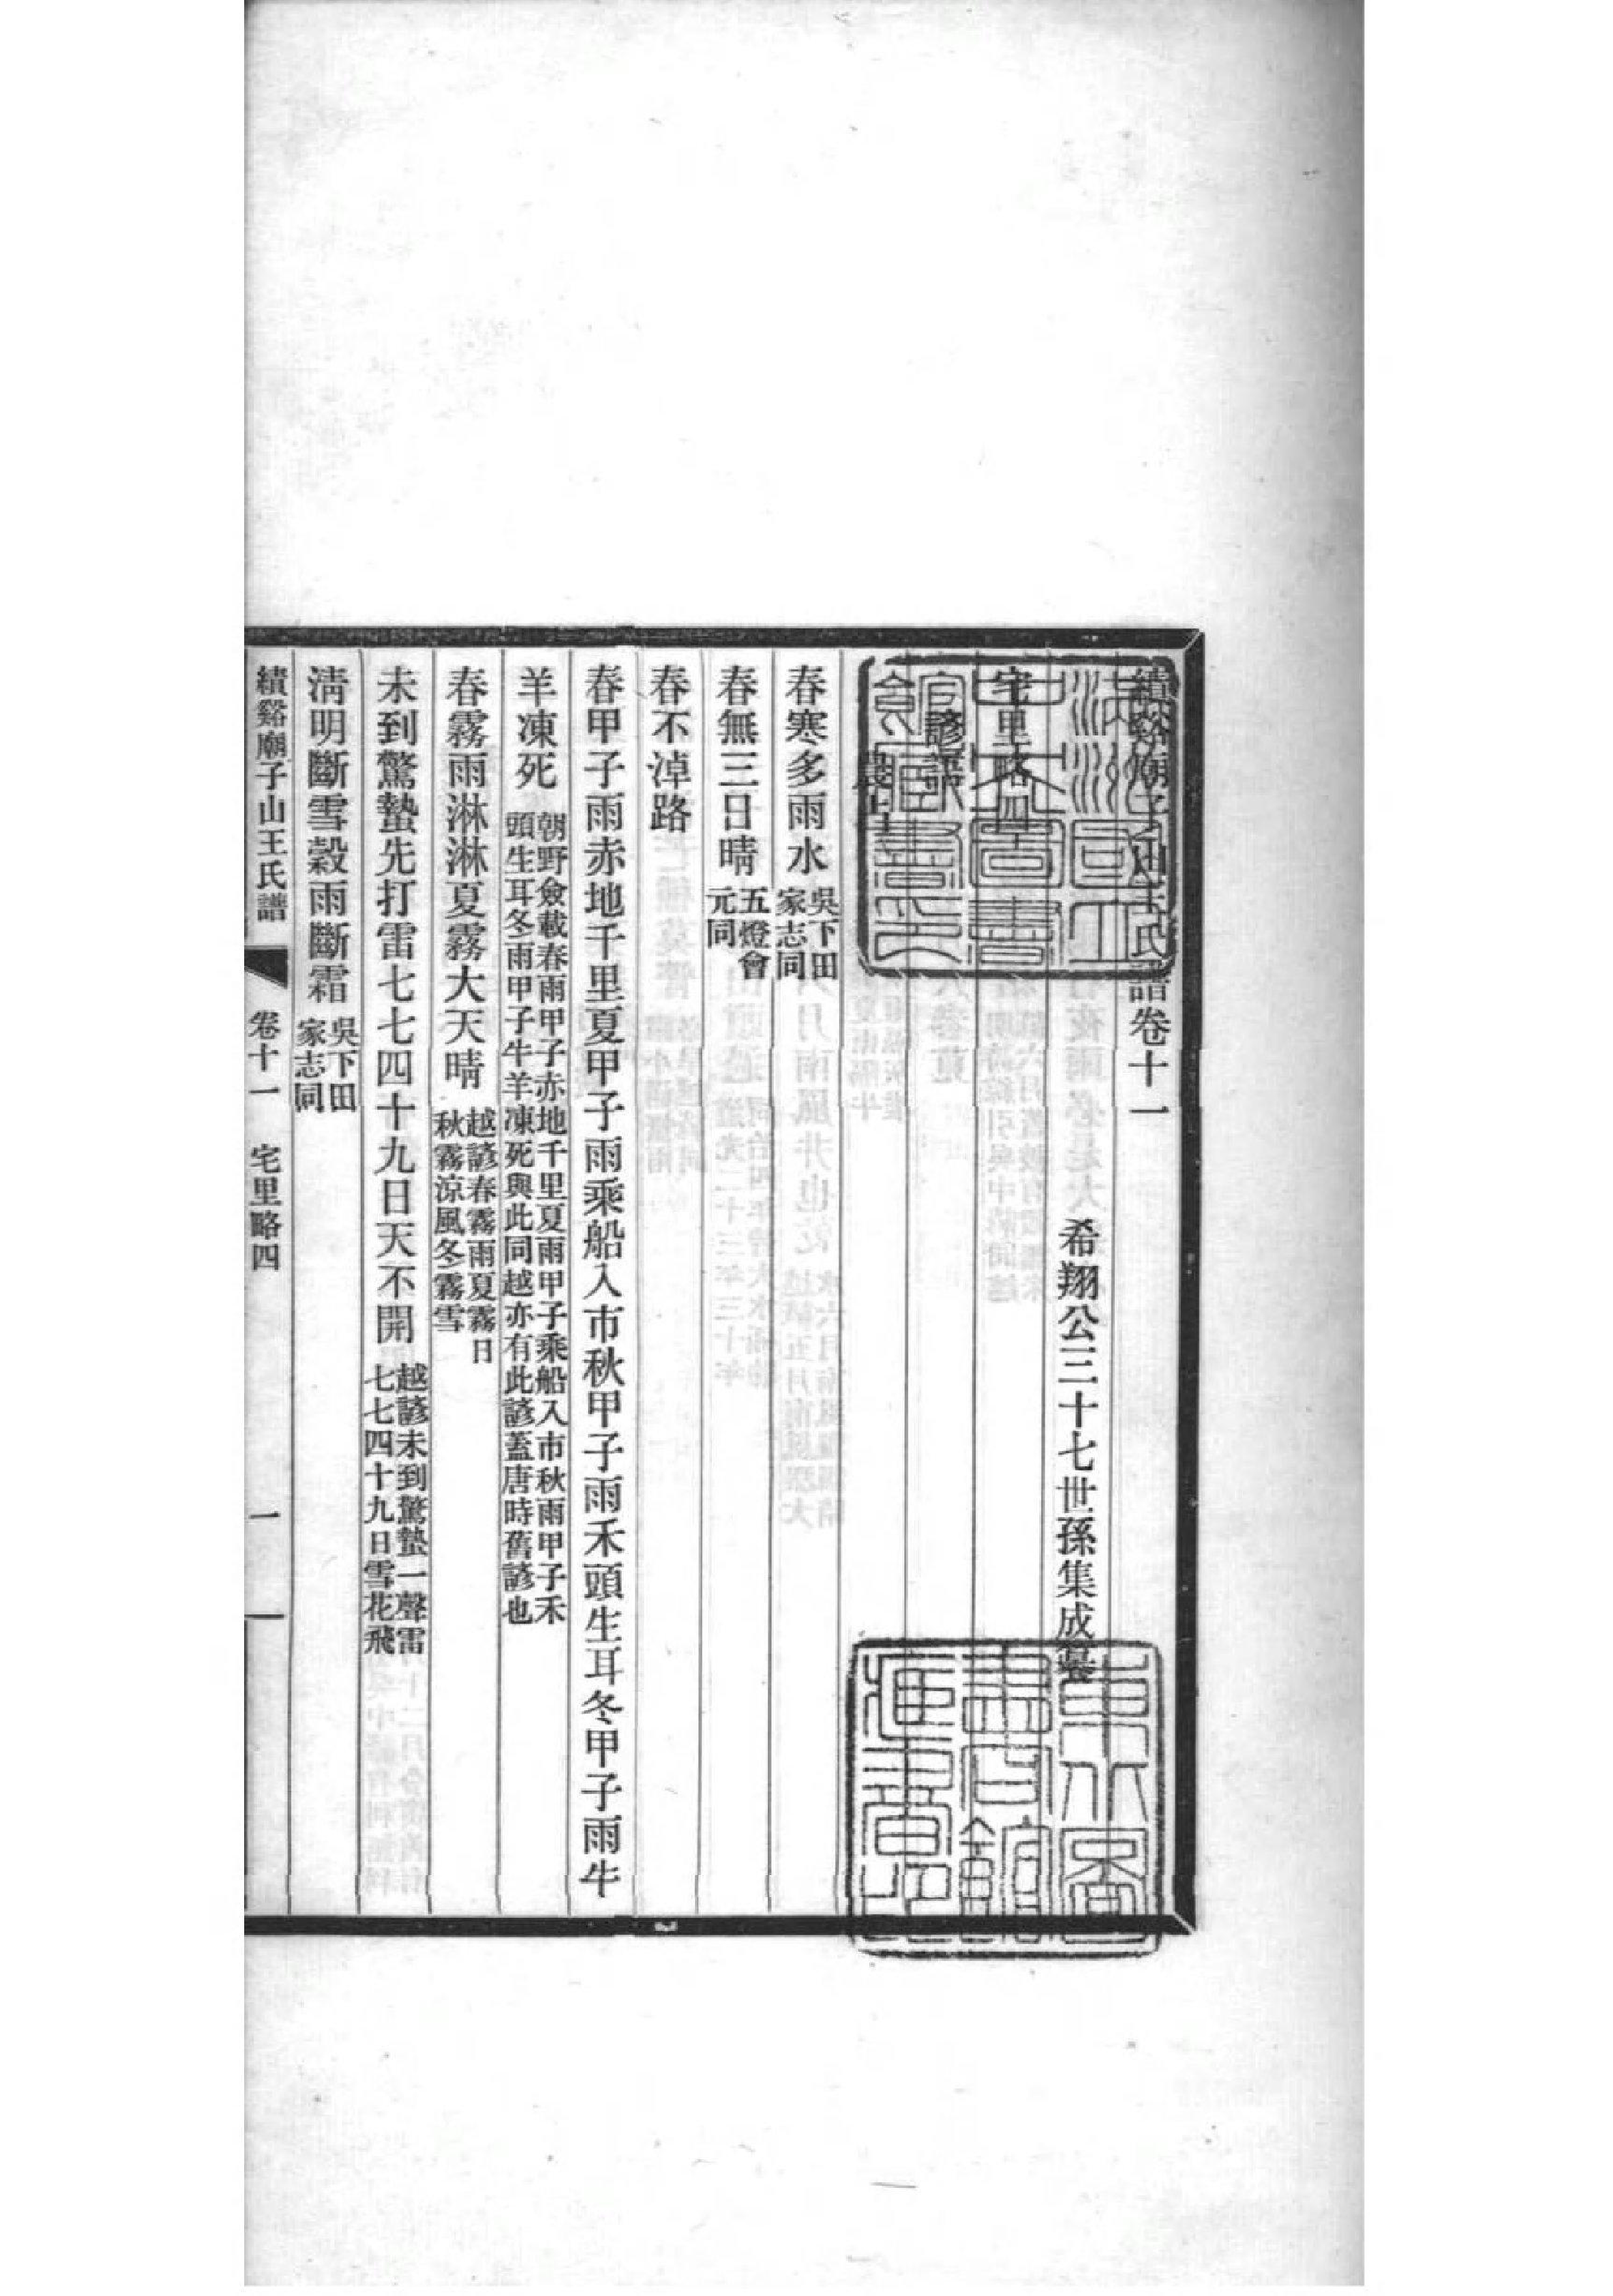 績谿廟子山王氏譜卷十一
希翔公三十七世孫集成纂
宅里略四
諺語
農占
春寒多雨水吳下田家志同
春無三日晴五燈會元同
春不淖路
春甲子雨赤地千里夏甲子雨乘船入市秋甲子雨禾頭生耳冬甲子雨牛
羊凍死朝野僉載春雨甲子赤地千里夏雨甲子乘船入市秋雨甲子禾頭生耳冬雨甲子牛羊凍死與此同越亦有此諺蓋唐時舊諺也
春霧雨淋淋夏霧大天晴越諺春霧雨夏霧日秋霧涼風冬霧雪
未到驚蟄先打雷七七四十九日天不開越諺未到驚蟄一聲雷七七四十九日雪花飛
清明斷雪穀雨斷霜吳下田家志同
績谿廟子山王氏譜 卷十一 宅里略四 一